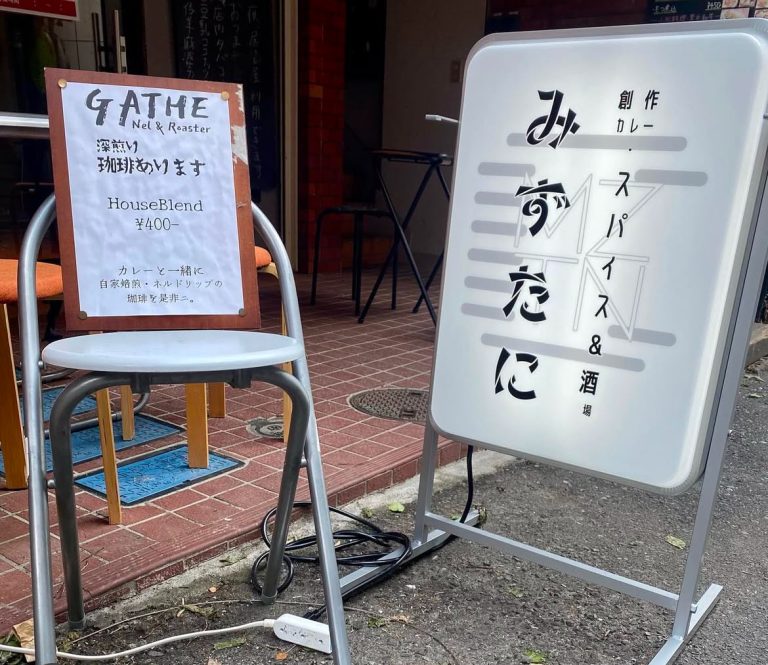 GATHE
Nel & Roaster
深煎り
珈琲あります
HouseBlend
¥400-
カレーと一緒に
自家焙煎・ネルドリップの
珈琲を是非ニ。
創作
カレー・スパイス&酒場
みずたに
MZ
TN